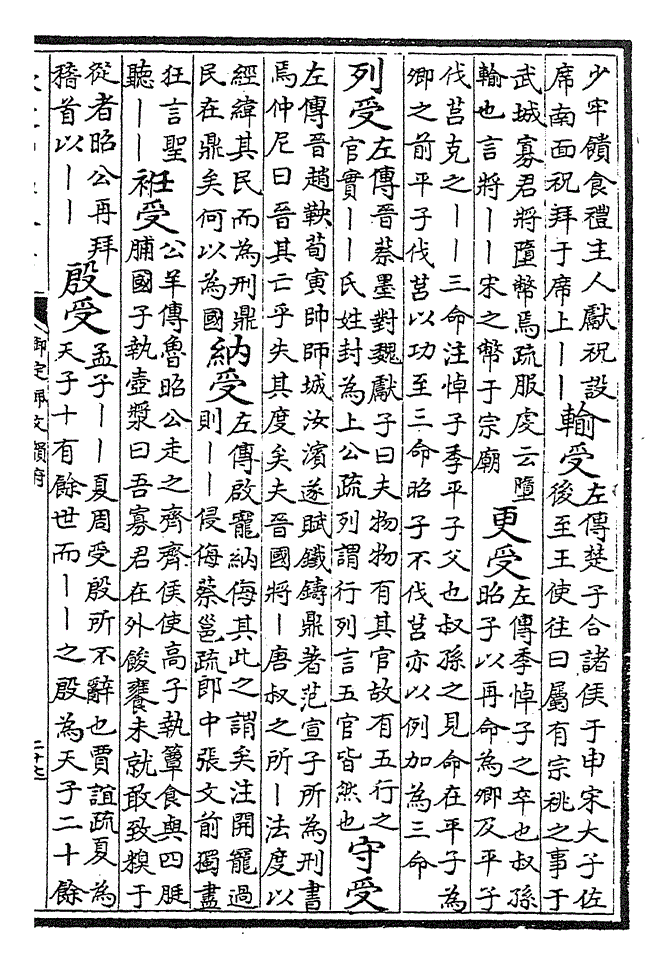 少牢饋食禮主人獻祝設
席南面祝拜于席上丨丨
輸受
左傳楚子合諸侯于申宋大子佐
後至王使往曰屬有宗祧之事于
武城寡君將墮幣焉疏服虔云墮
輸也言將丨丨宋之幣于宗廟
更受
左傳季悼子之卒也叔孫
昭子以再命為卿及平子
伐莒克之丨丨三命注悼子季平子父也叔孫之見命在平子為
卿之前平子伐莒以功至三命昭子不伐莒亦以例加為三命
列受
左傳晉蔡墨對魏獻子曰夫物物有其官故有五行之
官實丨丨氏姓封為上公疏列謂行列言五官皆然也
守受
左傳晉趙鞅荀寅帥師城汝濱遂賦鐵鑄鼎著范宣子所為刑書
焉仲尼曰晉其亡乎失其度矣夫晉國將丨唐叔之所丨法度以
經緯其民而為刑鼎
民在鼎矣何以為國
納受
左傳啟寵納侮其此之謂矣注開寵過
則丨丨侵侮蔡邕疏郎中張文前獨盡
狂言聖
聽丨丨
衽受
公羊傳魯昭公走之齊齊侯使高子執簞食與四脡
脯國子執壺漿曰吾寡君在外餕饔未就敢致糗于
從者昭公再拜
稽首以丨丨
殷受
孟子丨丨夏周受殷所不辭也賈誼疏夏為
天子十有餘世而丨丨之殷為天子二十餘
御定佩文韻府